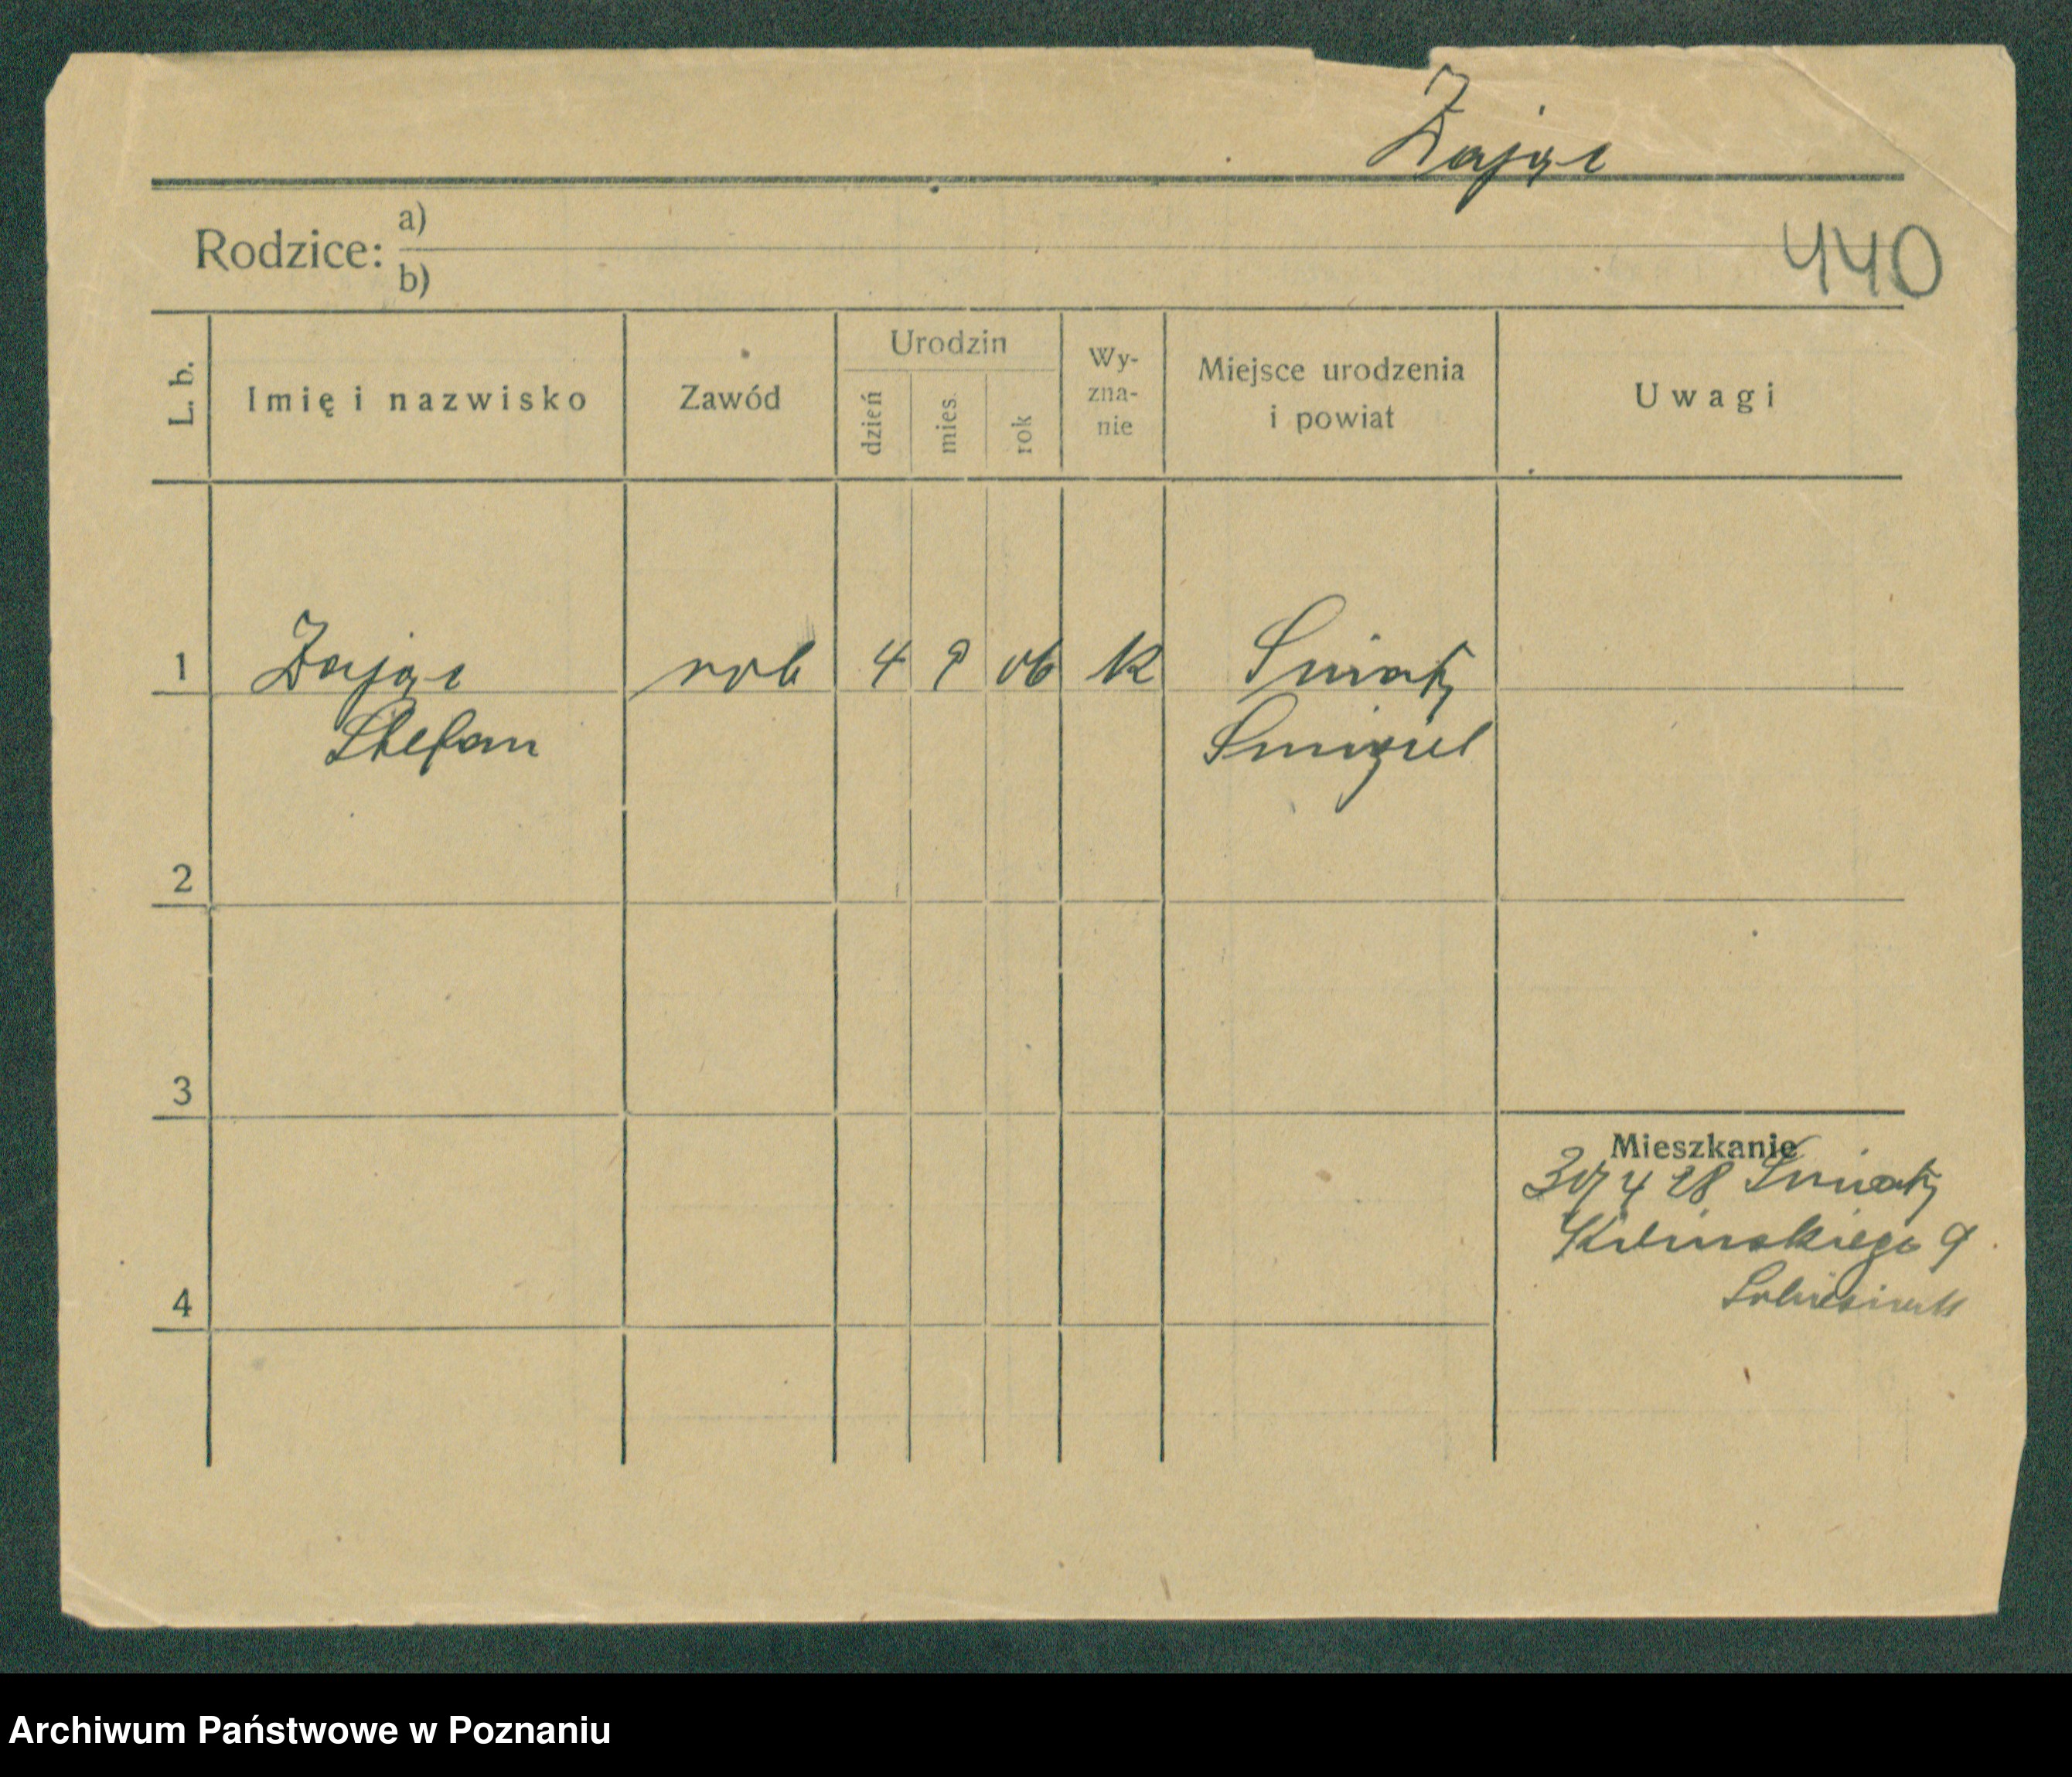 Zając
Rodzice: a)
b)
440
L. b. Imię i nazwisko Zawód Urodzin dzień mies. rok Wy-zna-nie Miejsce urodzenia i powiat Uwagi
1 Zając rob 4 9 06 k Śniaty
Stefan Śmigiel
2
3
Mieszkanie
4 28 Śniaty
Kilińskiego 9
4
Archiwum Państwowe w Poznaniu